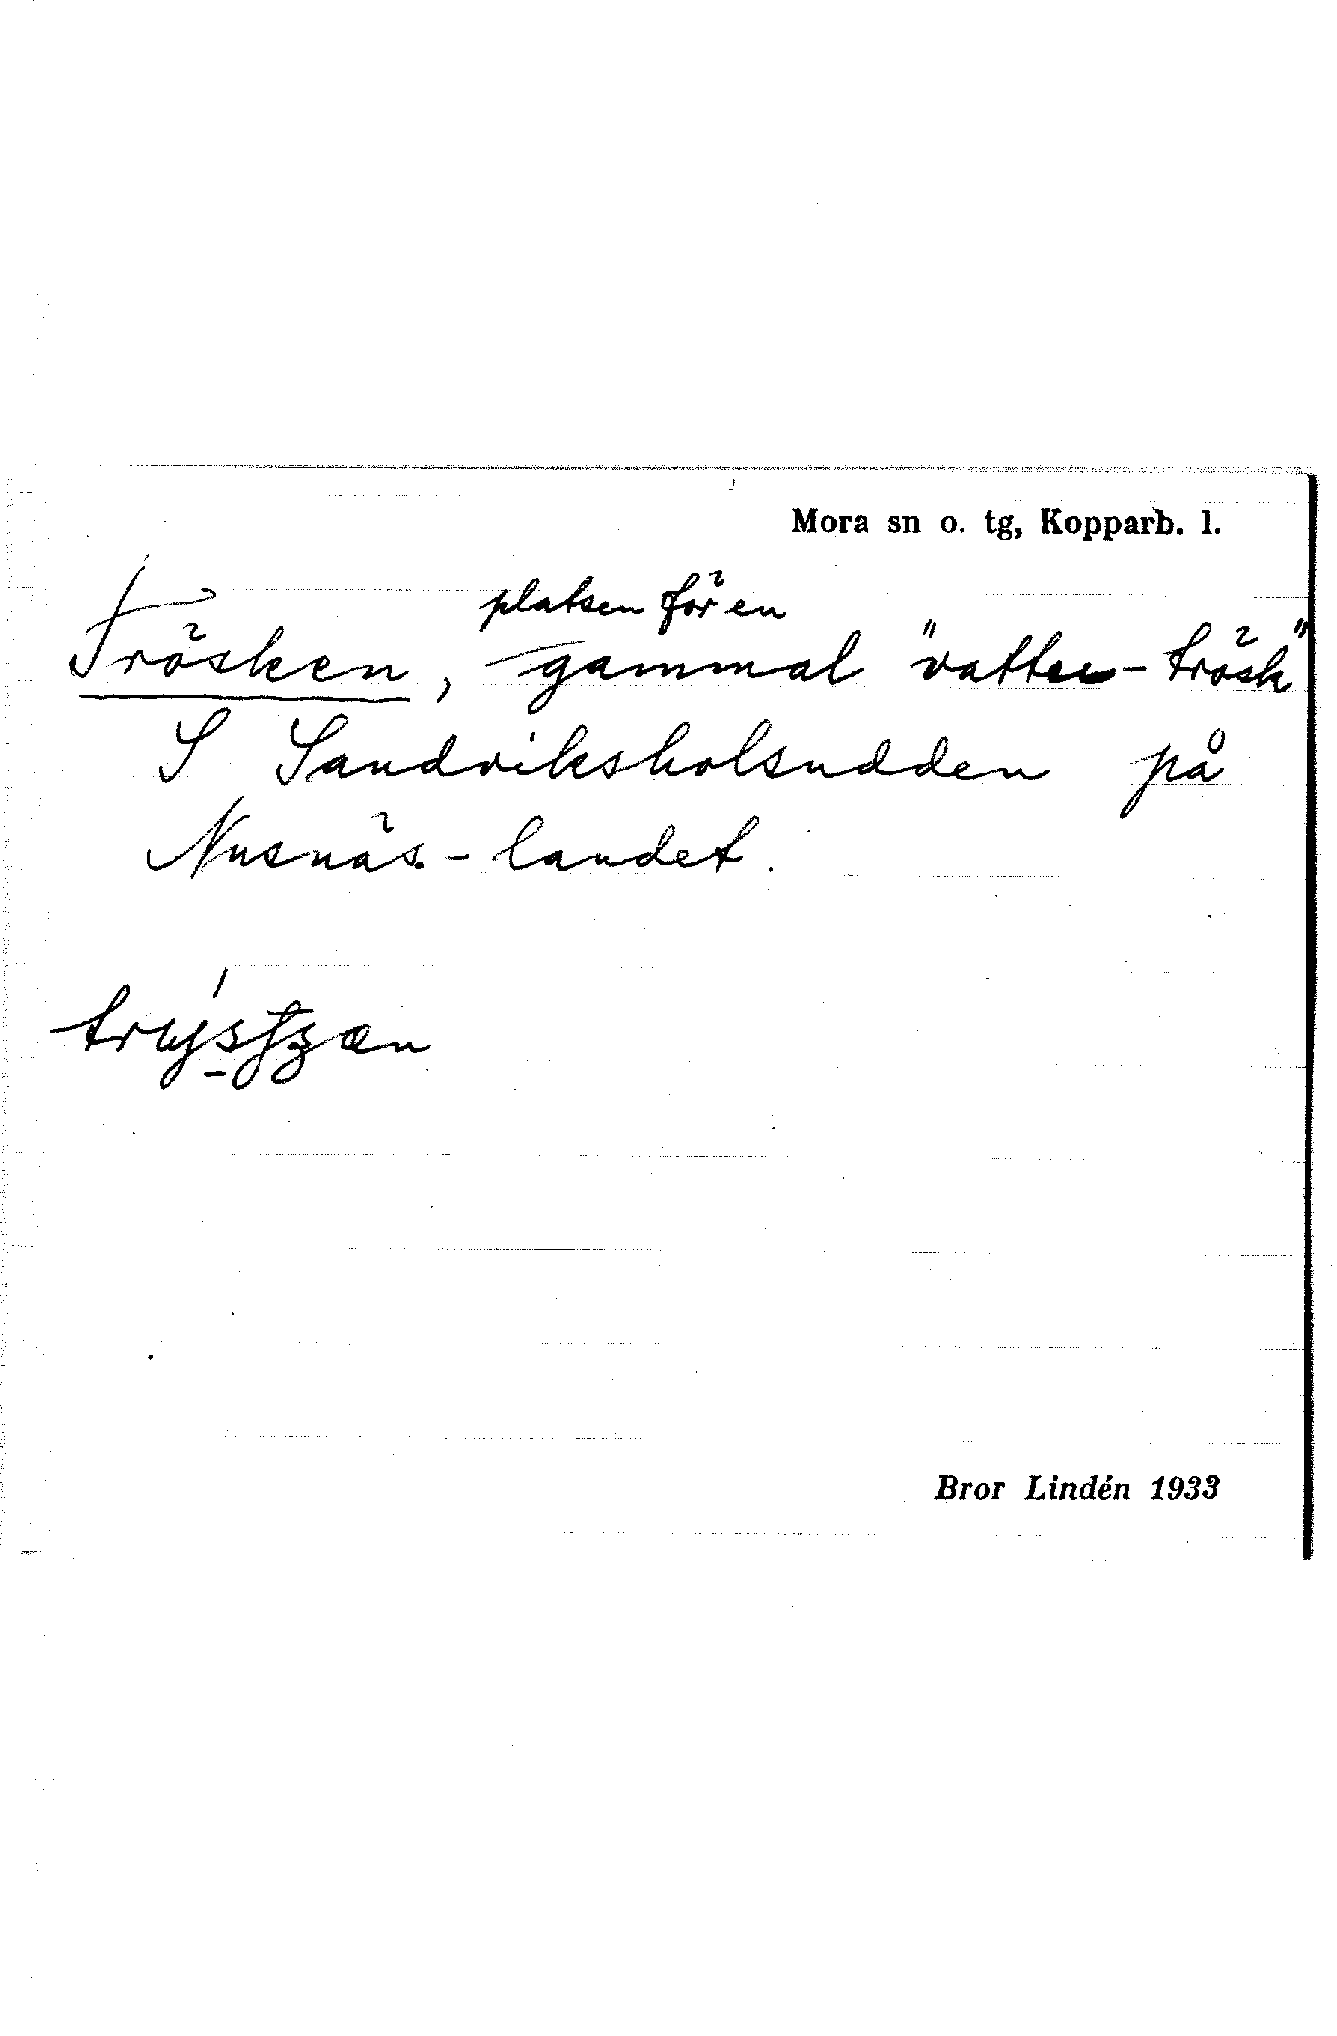 Mora sn o. tg, Kopparb. l.
platsen för en
Trösken, gammal "vatten-trösk"
S Sandviksholsudden på
Nusnäs-landet.
Bror Lindén 1933